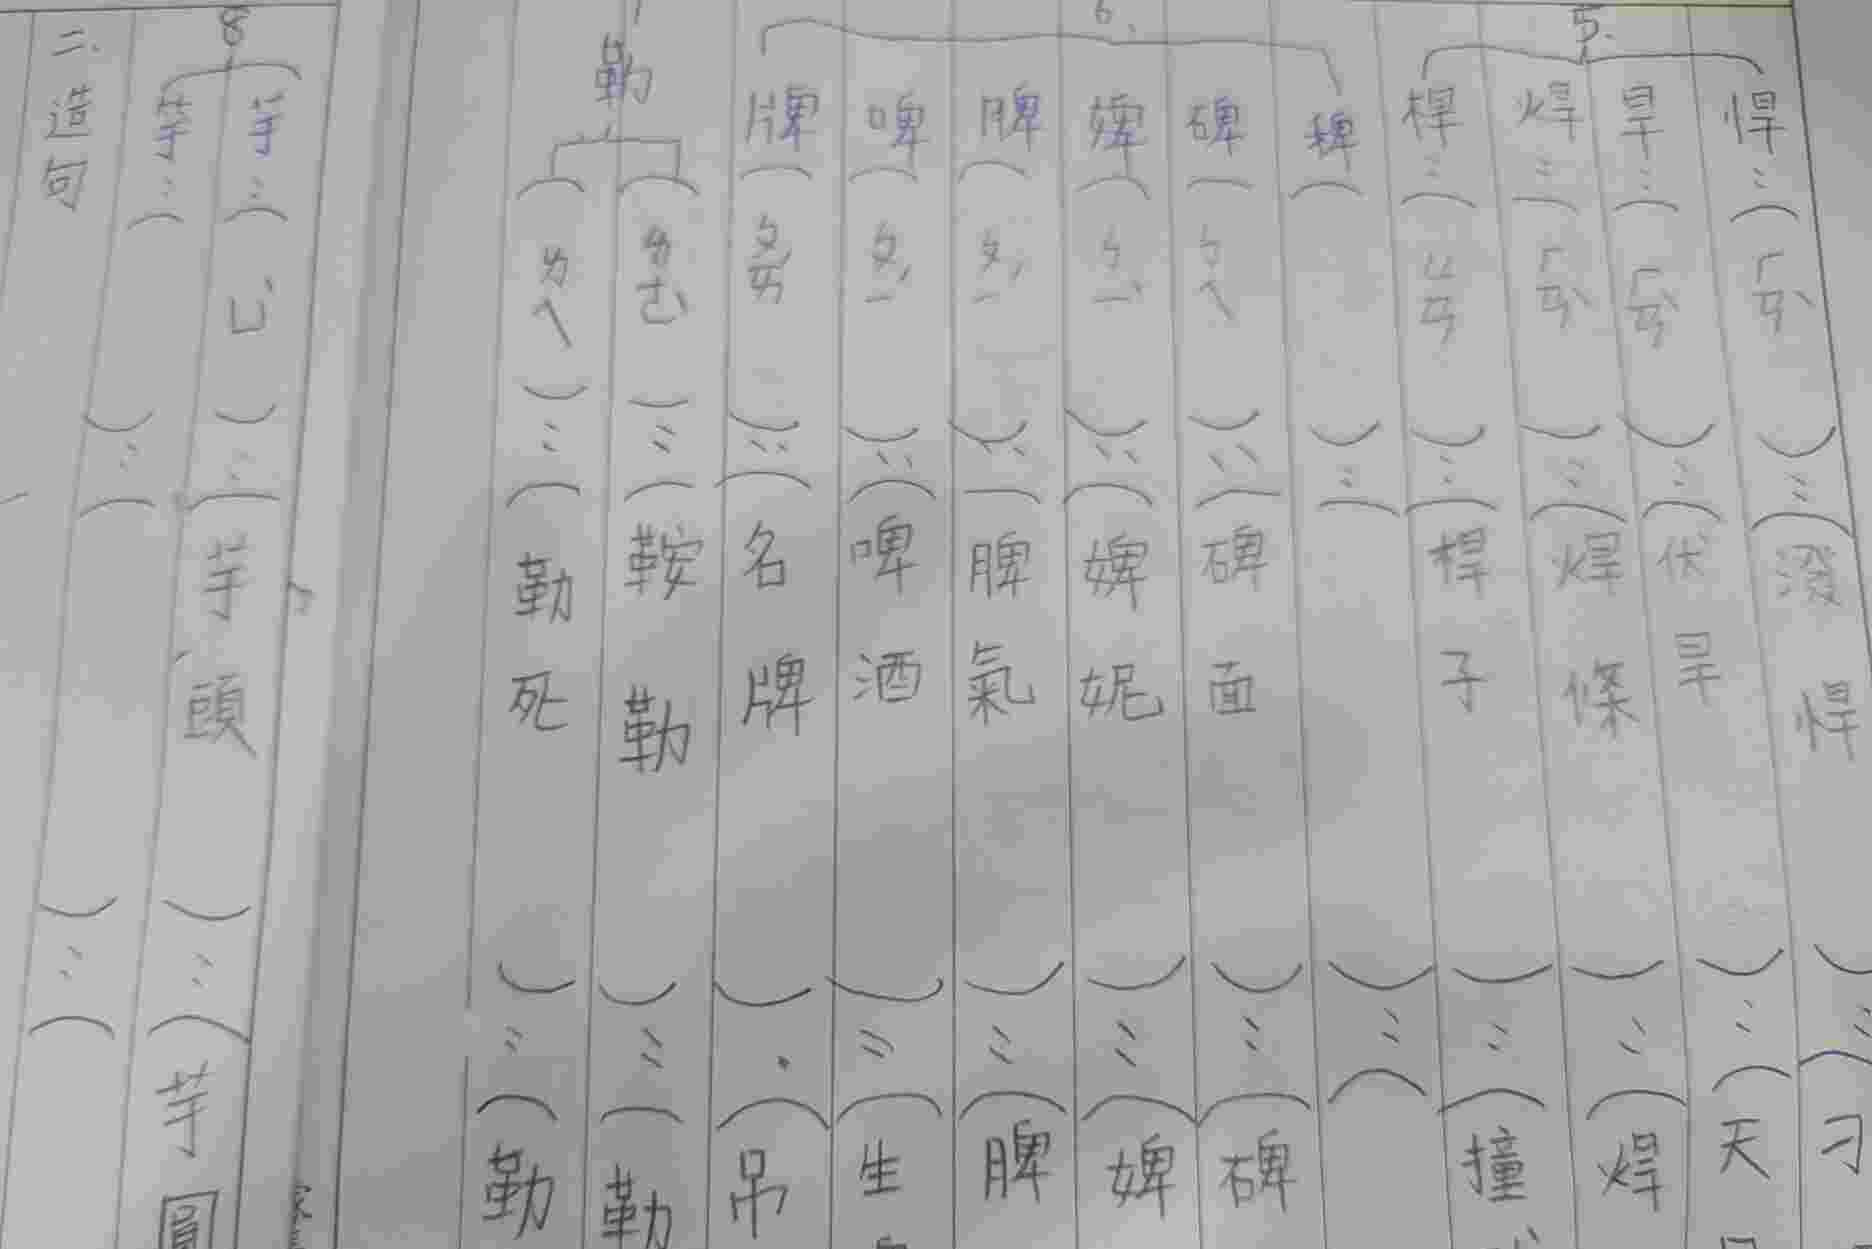 5.
悍：（ㄏㄢˋ）：（潑悍）：（刁
旱：（ㄏㄢˋ）：（伏旱）：（天
焊：（ㄏㄢˋ）：（焊條）：（焊
桿：（ㄍㄢ）：（桿子）：（撞
6.
稗（）：（）：（
碑（ㄅㄟ）：（碑面）：（碑
婢（ㄅㄧˋ）：（婢妮）：（婢
脾（ㄆㄧˊ）：（脾氣）：（脾
啤（ㄆㄧˊ）：（啤酒）：（生
牌（ㄆㄞˊ）：（名牌）：（吊
勒
（ㄌㄜˋ）：（鞍勒）：（勒
（ㄌㄟ）：（勒死）：（勒
8
芋：（ㄩˋ）：（芋頭）：（芋圓
芋：（）：（）：（
二、造句